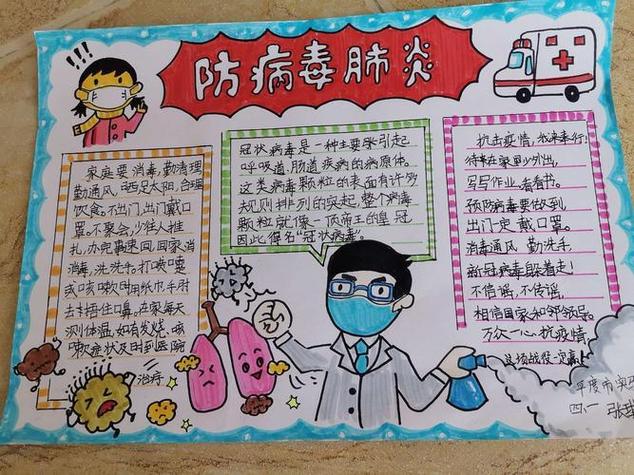 防病毒肺炎
!!!
家庭要消毒,勤清理
勤通风,晒足太阳,合理
饮食。不出门,出门戴口
罩。不聚会,少往人推
扎,办完事速回,回家消
消毒,洗洗手。打喷嚏
或咳嗽时用纸巾,手肘
去挡捂住口鼻。在家每天
测体温,如有发烧、咳
嗽症状及时到医院
治疗
冠状病毒是一种主要引起
呼吸道、肠道疾病的病原体。
这类病毒颗粒的表面有许多
规则排列的突起,整个病毒
颗粒就像一顶帝王的皇冠
因此得名“冠状病毒”。
抗击疫情,我来奉行!
待在家里少外出,
写写作业,看看书。
预防病毒要做到,
出门一定戴口罩。
消毒通风勤洗手,
新冠病毒躲着走!
不信谣,不传谣,
相信国家和
万众一心抗疫情,
这场战役一定赢!
平度市实
四一 张